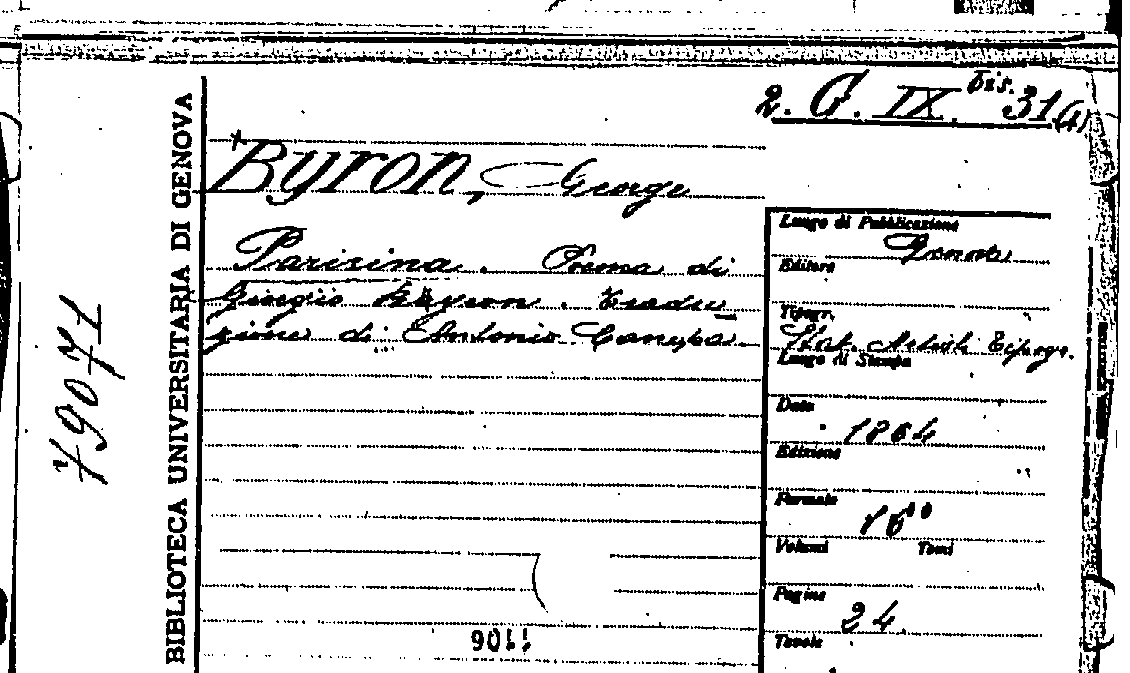 2. G. IX. bis. 31(4)
BIBLIOTECA UNIVERSITARIA DI GENOVA
79071
Byron, George
Parisina. Poema di
Giorgio Bÿron. Tradu
zione di Antonio Canepa
Luogo di Pubblicazione
Genova
Editore
Tipogr.
Stab. Tipogr.
Luogo di Stampa
Data
1864
Edizione
Formato
16°
Volumi Tomi
Pagine
24
Tavole
1106